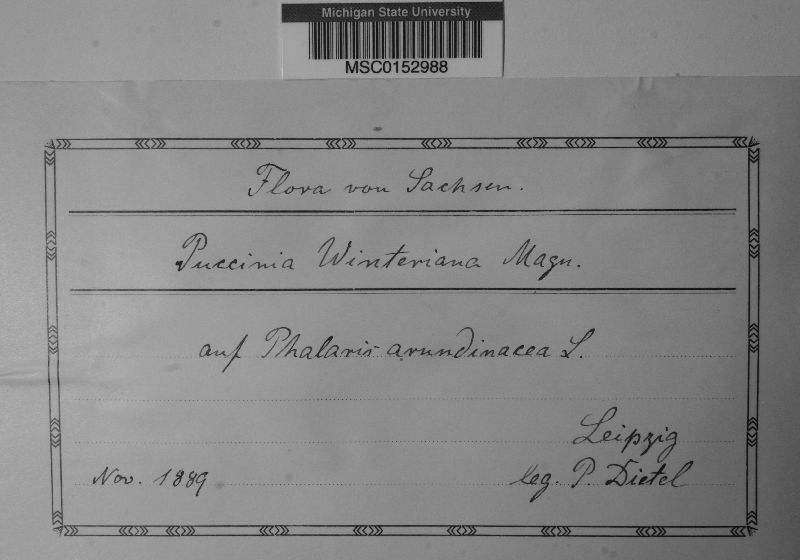 Michigan State University
MSC0152988
Flora von Sachsen.
Puccinia Winteriana Magn.
auf Phalaris arundinacea L.
Leipzig
Nov. 1889
leg. P. Dietel